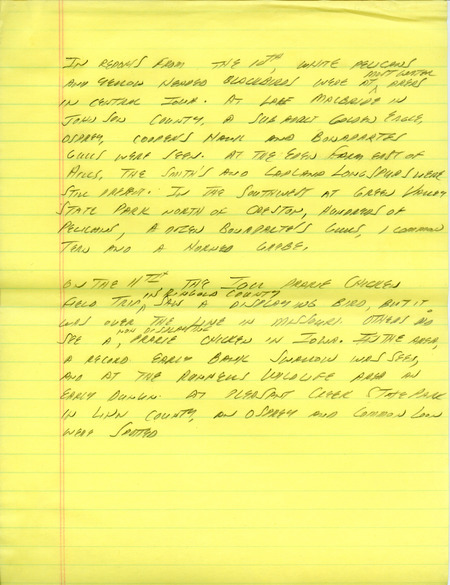 In reports from the 10th, white pelicans
and yellow headed blackbirds were at most water areas
in central Iowa. At Lake Macbride in
Johnson County, a sub adult Golden Eagle,
Osprey, Cooper's Hawk and Bonapartes
Gulls were seen. At the Eden Farm east of
Ames, the Smith's and Lapland Longspurs were
still present. In the southwest at Green Valley
State Park north of Creston, hundreds of
pelicans, a dozen Bonaparte's Gulls, 1 common
Tern and a Horned Grebe.
On the 11th the Iowa Prairie Chicken
field trip in Ringgold County saw a displaying bird, but it
was over the line in Missouri. Others do
see a non displaying prairie chicken in Iowa. In the area,
a record early Bank Swallow was seen,
and at the Runnells Wildlife Area an
early Dunlin. At Pleasant Creek State Park
in Linn County, an Osprey and Common Loon
were spotted